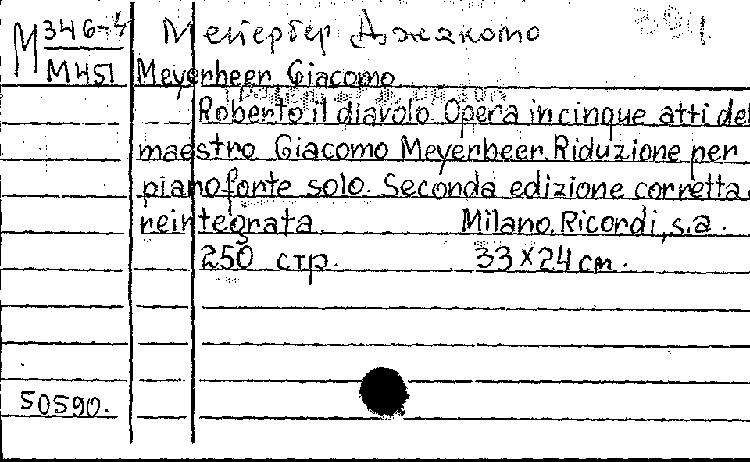 М 346-4 Мейербер Джакомо
М451 Meyerbeer Giacomo
Roberto il diavolo Opera in cinque atti del
maestro Giacomo Meyerbeer. Riduzione per
pianoforte solo. Seconda edizione corretta e
reintegrata. Milano. Ricordi, s.a.
250 стр. 33x24 cm.
50590.